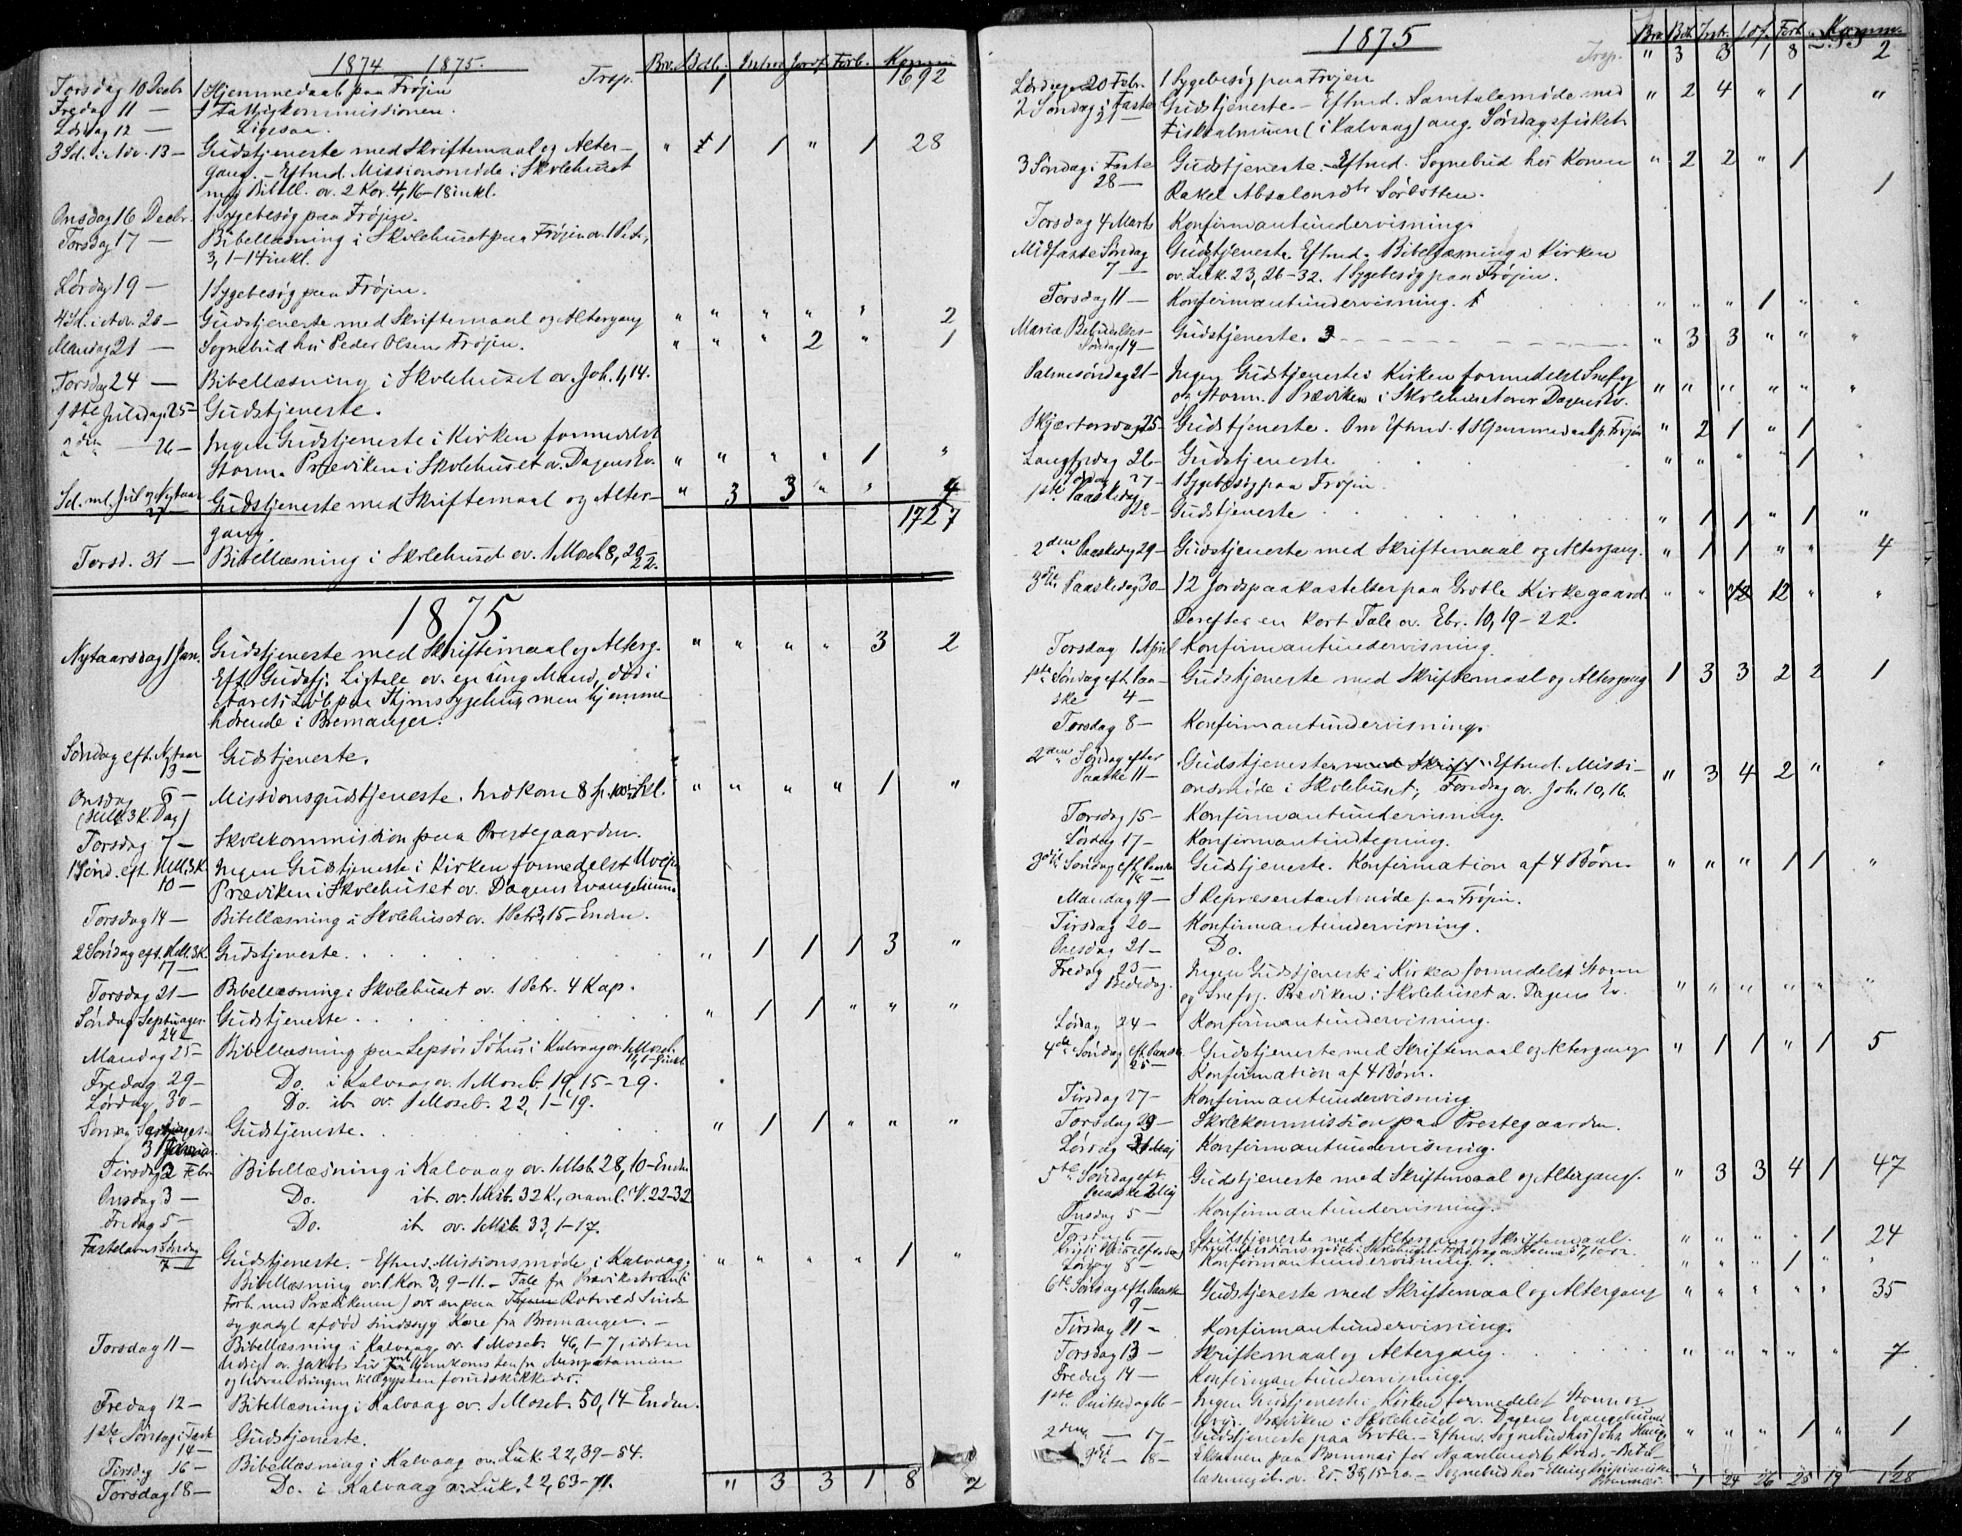 1874 1875.
Trsp. Brv. Bdb. Introd. Jordf. Forb. Komm.
Torsdag 10 Decbr 1 Hjemmedaab paa Frøjen 1 1692
Fredag 11 — I Fattigkommissionen.
Lørdag 12 — Ligesaa.
3 Sd. i Adv. 13 — Gudstjeneste med Skriftemaal og Alter- " 1 1 " 1 28
gang. — Eftmd. Missionsmøde i Skolehuset
med Bibell. ov. 2 Kor. 4, 16-18 inkl.
Onsdag 16 Decbr. 1 Sygebesøg paa Frøjen.
Torsdag 17 — Bibellæsning i Skolehuset paa Frøjen ov. 1 Pet.
3, 1-14 inkl.
Lørdag 19 — 1 Sygebesøg paa Frøjen.
4 Sd. i Adv. 20 — Gudstjeneste med Skriftemaal og Altergang " " " " " 2
Mandag 21 — Sognebud hos Peder Olsen Frøjen. " " " 2 " 1
Torsdag 24 — Bibellæsning i Skolehuset ov. Joh. 1, 14.
1ste Juledag 25 — Gudstjeneste.
2den — 26 — Ingen Gudstjeneste i Kirken formedelst
Storm. Prædiken i Skolehuset ov. Dagens Ev. " " " " 1 "
Sd. ml. Jul og Nytaar 27 Gudstjeneste med Skriftemaal og Alter- " 3 3 " " 4
gang. 1727
Torsd. 31 — Bibellæsning i Skolehuset ov. 1 Moseb. 8, 20-22.
1875
Nytaarsdag 1 Jan. Gudstjeneste med Skriftemaal og Alterg. " " " " 3 2
Eft. Gudstj. Ligtale ov. en ung Mand, død i
Aarets Løb paa Sygehus, men hjemme
hørende i Bremanger.
Søndag eft. Nytaar Gudstjeneste.
3 —
Onsdag 6 — Missionsgudstjeneste. Indkom 8 Skl. " " " " 1 "
(Hell. 3 K. Dag)
Torsdag 7 — Skolekommission paa Prestegaarden.
1 Sønd. eft. Hell. 3 K. Ingen Gudstjeneste i Kirken formedelst Uvejr
10 — Prædiken i Skolehuset ov. Dagens Evangelium.
Torsdag 14 — Bibellæsning i Skolehuset ov. 1 Petr. 3, 15 - Enden.
2 Søndag eft. Hell. 3 K. Gudstjeneste. " 1 1 1 3 "
17 —
Torsdag 21 — Bibellæsning i Skolehuset ov. 1 Petr. 4 Kap.
Søndag Septuages. Gudstjeneste " 1 1 " " "
24 —
Mandag 25 — Bibellæsning paa Lepsøs Søhus i Kalvaag ov. 1 Moseb.
Fredag 29 — Do. i Kalvaag ov. 1 Moseb. 19, 15-29.
Lørdag 30 — Do. ib. ov. 1 Moseb. 22, 1-19.
Søndag Gudstjeneste. " 1 1 " " "
31 Januar
Tirsdag 2 Febr. Bibellæsning i Kalvaag ov. 1 Msb. 28, 10 - Enden
Onsdag 3 — Do. ib. ov. 1 Msb. 32 K., navnl. V. 22-32
Fredag 5 — Do. ib. ov. 1 Msb. 33, 1-17.
Fastelavns Søndag Gudstjeneste. — Eftmd. Missionsmøde i Kalvaag, " " " " 1 "
7 — Bibellæsning ov. 1 Kor. 3, 9-11. — Tale fra Prædikestolen (i
Forb. med Prædikenen) over en paa Rotvold Sinds
sygeasyl afdød sindssyg Kone fra Bremanger. —
Torsdag 11 — Bibellæsning i Kalvaag ov. 1 Moseb. 46, 1-7, idet en
Udsigt ov. Jakobs Liv fra Hjemkomsten fra Mesopotamien
og Udvandringen til Ægypten forudskikkedes.
Fredag 12 — Bibellæsning i Kalvaag ov. 1 Moseb. 50, 14 - Enden.
1ste Søndag i Faste Gudstjeneste.
14 —
Tirsdag 16 — Bibellæsning i Kalvaag ov. Luk. 22, 39-54.
Torsdag 18 — Do. i Kalvaag ov. Luk. 22, 63-71. " 3 3 1 8 2
1875
Brv. Bdb. Intr. Jof. Forb. Komm.
Trsp. " 3 3 1 8 2
Lørdag 20 Febr. 1 Sygebesøg paa Frøjen
2 Søndag i Faste Gudstjeneste — Eftmd. Samtalemøde med " 2 4 " 1 "
21 — Fiskealmuen (i Kalvaag) ang. Søndagsfisket.
3 Søndag i Faste Gudstjeneste. — Eftmd. Sognebud hos Konen " 2 2 " 1
28 — Rakel Absalonsdtr Sørbotten. 1
Torsdag 4 Marts Konfirmantundervisning.
Midfaste Søndag Gudstjeneste. Eftmd. Bibellæsning i Kirken
7 — ov. Luk. 23, 26-32. 1 Sygebesøg paa Frøjen.
Torsdag 11 — Konfirmantundervisning. " " " 1 " "
Maria Bebudelses- Gudstjeneste. " 3 3 " " "
Søndag 14 —
Palmesøndag 21 — Ingen Gudstjeneste i Kirken formedelst Snefog
og Storm. Prædiken i Skolehuset over Dagens Ev. " " " " " "
Skjærtorsdag 25 — Gudstjeneste. Om Eftmd. 1 Hjemmedaab p. Frøjen " 2 1 " 1
Langfredag 26 — Gudstjeneste. " " " " 1
Lørdag 27 — 1 Sygebesøg paa Frøjen
1ste Paaskedag
28 — Gudstjeneste " 1 1 " 1 "
2den Paaskedag 29 — Gudstjeneste med Skriftemaal og Altergang. " 1 1 " " 4
3die Paaskedag 30 — 12 Jordspaakastelser paa Grotle Kirkegaard. " " 12 12 " "
Derefter en kort Tale ov. Ebr. 10, 19-22.
Torsdag 1 April Konfirmantundervisning.
1ste Søndag eft. Paa- Gudstjeneste med Skriftemaal og Altergang 1 3 3 2 2 1
ske 4 —
Torsdag 8 — Konfirmantundervisning.
2den Søndag efter Gudstjeneste med Skrift. Eftmd. Missi-
Paaske 11 — onsmøde i Skolehuset; Foredrag ov. Joh. 10, 16. " 3 4 2 " "
Torsdag 15 — Konfirmantundervisning.
Lørdag 17 — Konfirmantindtegning.
3die Søndag eft. Paaske Gudstjeneste. Konfirmation af 4 Børn. " " " 1 1 "
18 —
Mandag 19 — I Repræsentantmøde paa Frøjen.
Tirsdag 20 — Konfirmantundervisning.
Onsdag 21 — Do.
Fredag 23 — Ingen Gudstjeneste i Kirken formedelst Storm
Bededag. og Snefog. Prædiken i Skolehuset ov. Dagens Ev. " " " " " "
Lørdag 24 — Konfirmantundervisning.
4de Søndag eft. Paaske Gudstjeneste med Skriftemaal og Altergang " 1 1 " 1 5
25 — Konfirmation af 4 Børn.
Tirsdag 27 — Konfirmantundervisning
Torsdag 29 — Skolekommission paa Prestegaarden.
Lørdag 1 Maj Konfirmantundervisning.
5te Søndag eft. Gudstjeneste med Skriftemaal og Altergang. " 3 3 4 1 47
Paaske 2 Maj
Onsdag 5 — Konfirmantundervisning.
Torsdag 6 — Gudstjeneste med Altergang og Skriftemaal. " " " " 1 24
Kristi Himmelfartsdag Eftmd. Missionsmøde i Skolehuset. Foredrag ov. Salme 57, 10-12.
Lørdag 8 — Konfirmantundervisning. " " " 1 " "
6te Søndag eft. Paaske Gudstjeneste med Skriftemaal og Altergang " " " " " 35
9 —
Tirsdag 11 — Konfirmantundervisning.
Torsdag 13 — Skriftemaal og Altergang. " " " " " 7
Fredag 14 — Konfirmantundervisning.
1ste Pintsedag 16 — Ingen Gudstjeneste i Kirken formedelst Storm og
Uvejr. Prædiken i Skolehuset ov. Dagens Evangelium
2den — 17 — Gudstjeneste paa Grotle. — Eftmd. Sognebud hos " " " 1 " 1
3die — 18 — Eksamen paa for Kreds. — Bibel-
læsning ib. ov. Es. 35, — Sognebud hos Elling Kristiansen 1
1 24 26 25 19 128